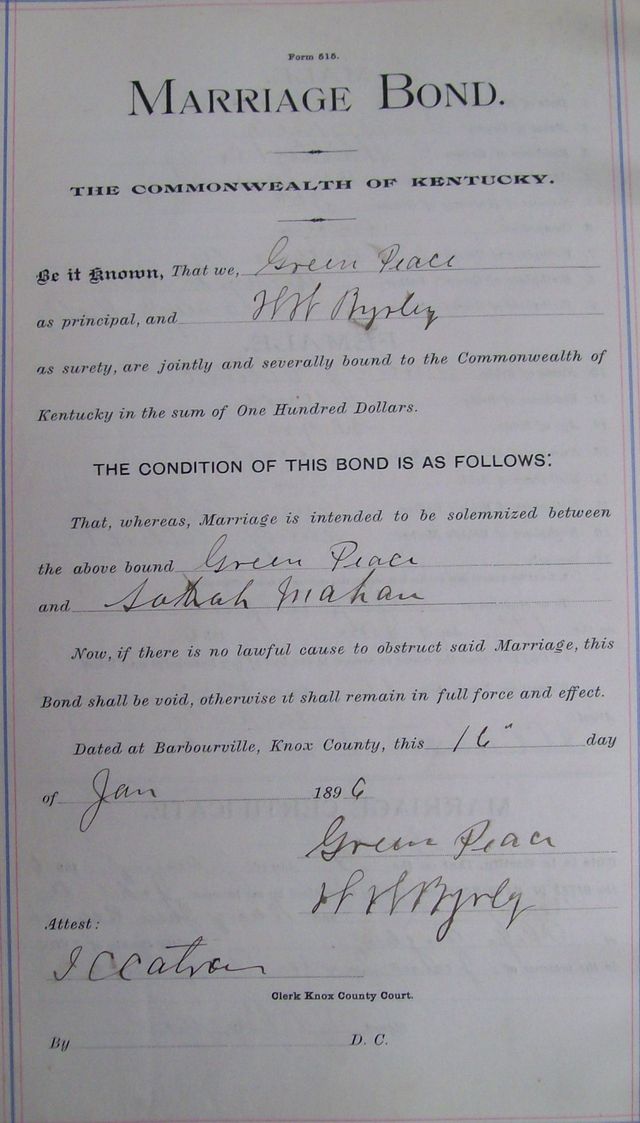 Form 515.
MARRIAGE BOND.
THE COMMONWEALTH OF KENTUCKY.
Be it Known, That we, Green Peace
as principal, and H H Byrley
as surety, are jointly and severally bound to the Commonwealth of
Kentucky in the sum of One Hundred Dollars.
THE CONDITION OF THIS BOND IS AS FOLLOWS:
That, whereas, Marriage is intended to be solemnized between
the above bound Green Peace
and Sarah Mahan
Now, if there is no lawful cause to obstruct said Marriage, this
Bond shall be void, otherwise it shall remain in full force and effect.
Dated at Barbourville, Knox County, this 16" day
of Jan 1896
Green Peace
H H Byrley
Attest:
Clerk Knox County Court.
By D. C.